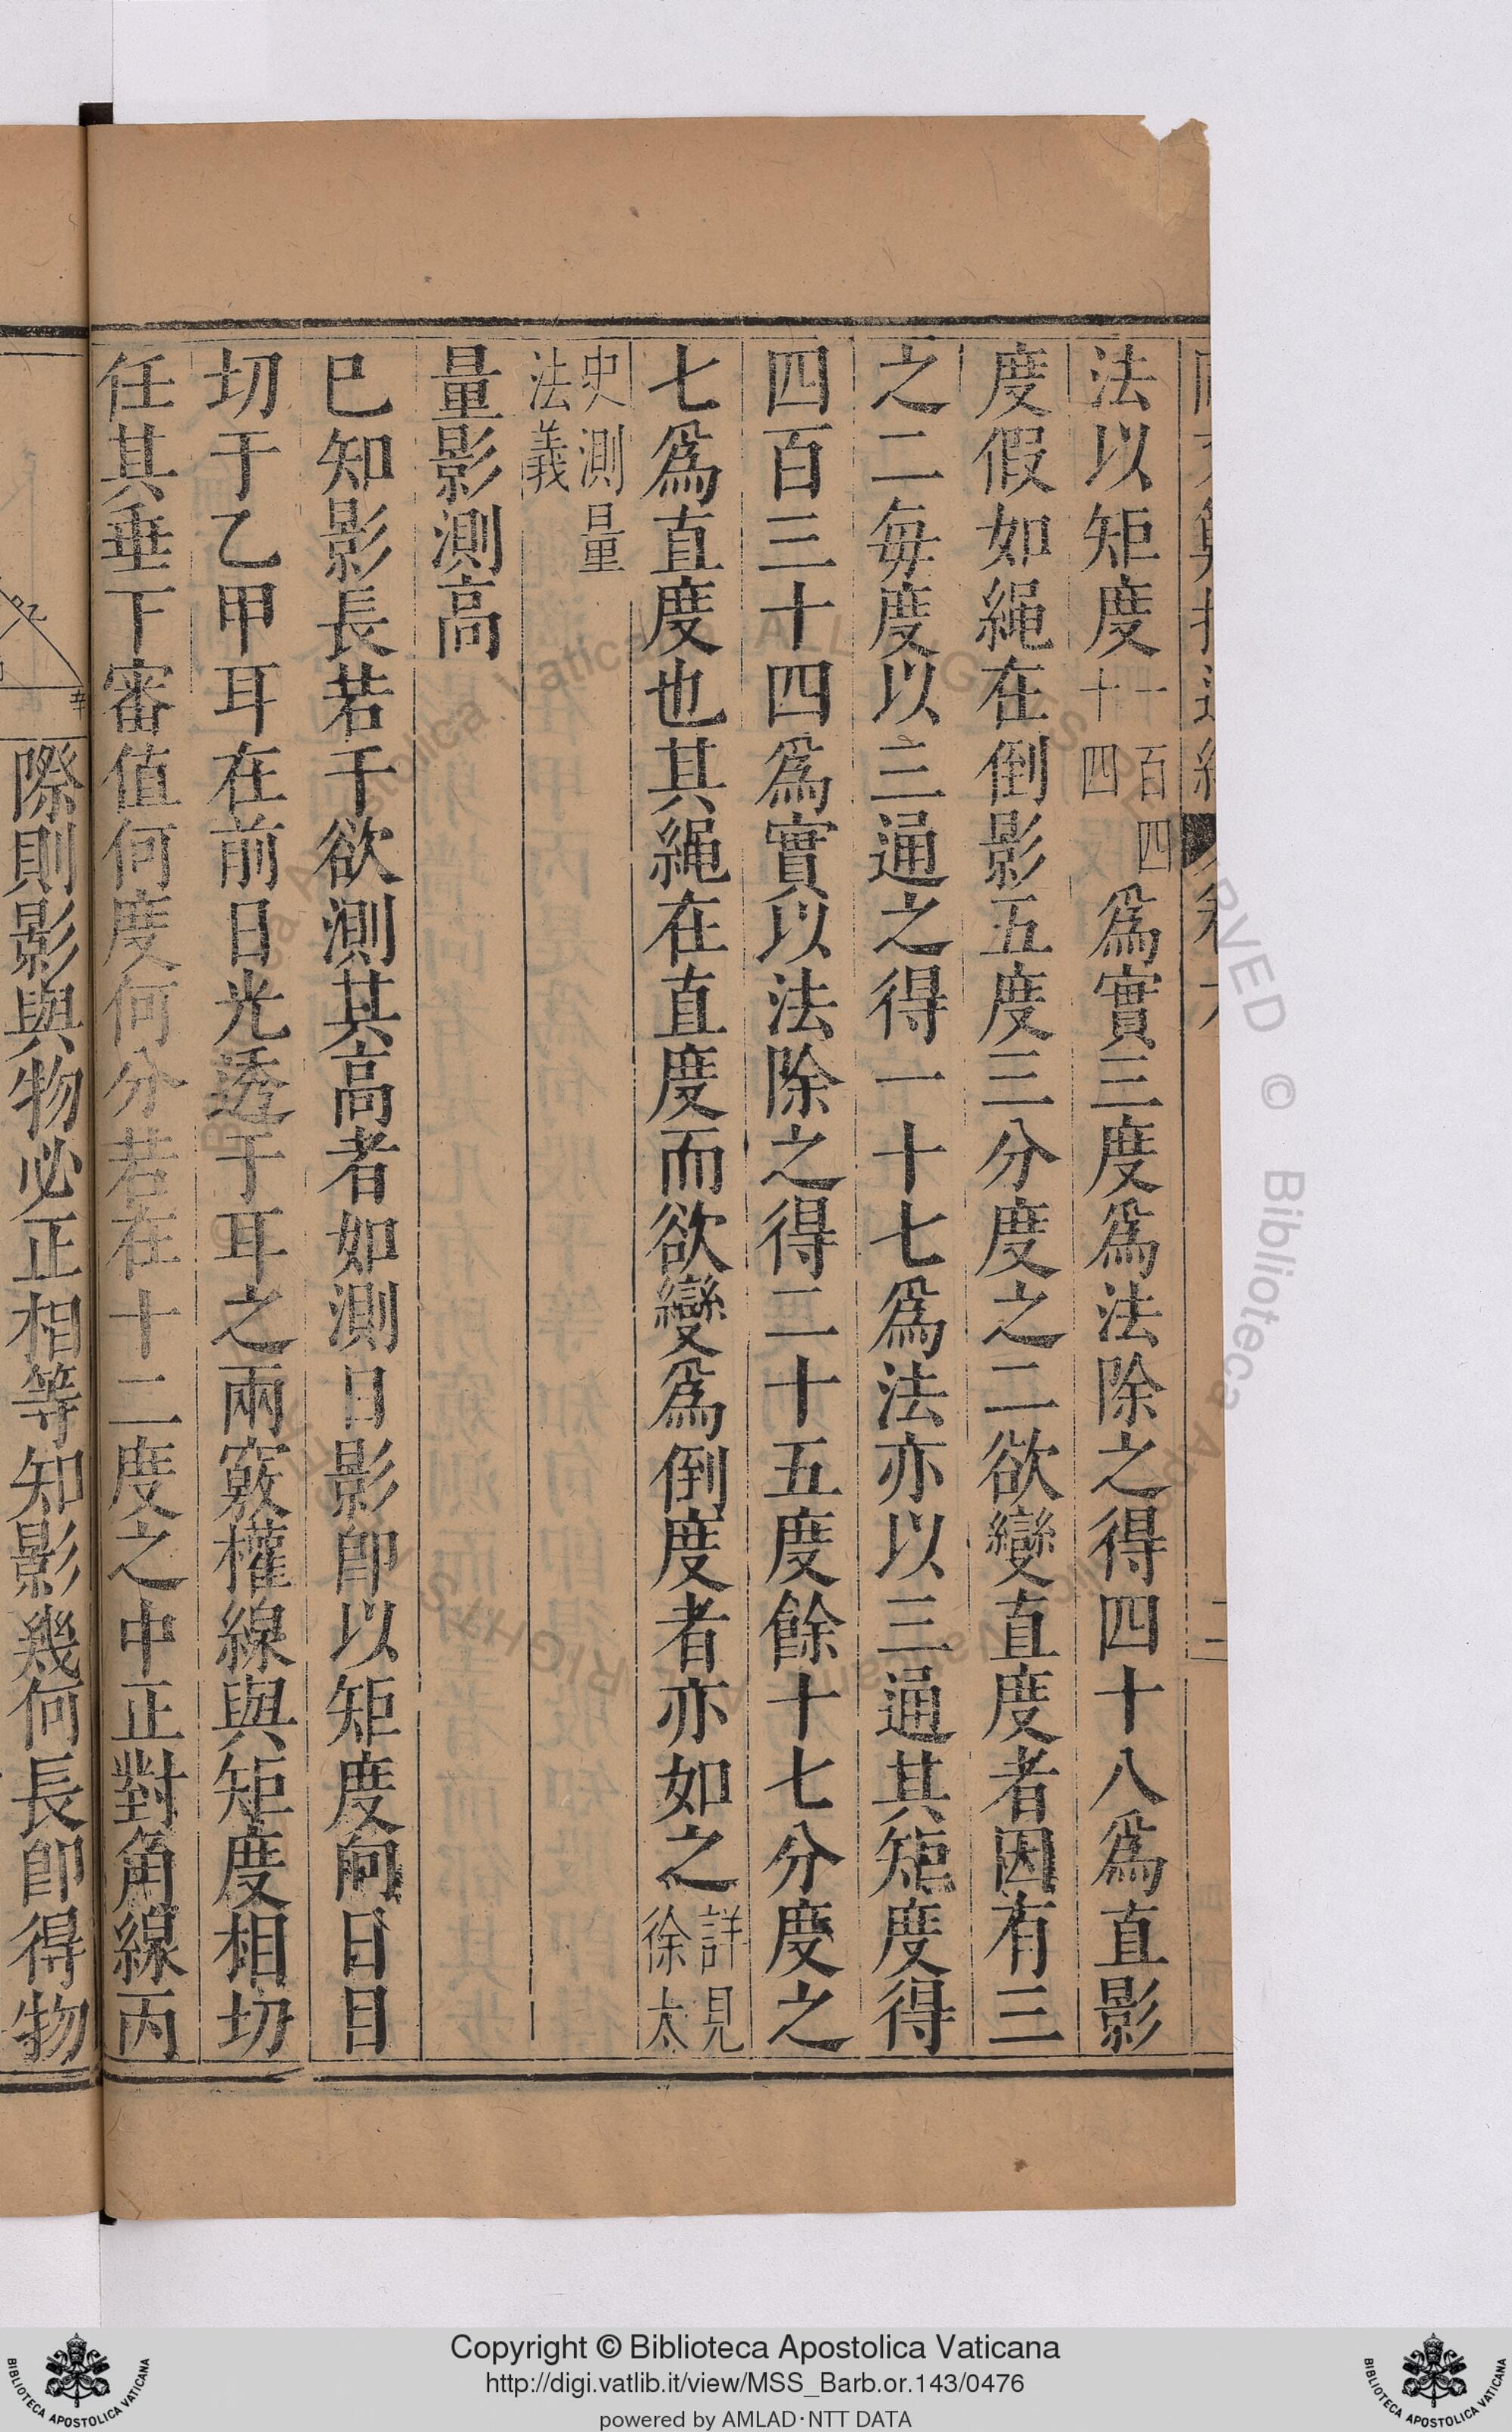 法以矩度一百四十四爲實三度爲法除之得四十八爲直影
度假如繩在倒影五度三分度之二欲變直度者因有三
之二每度以三通之得一十七爲法亦以三通其矩度得
四百三十四爲實以法除之得二十五度餘十七分度之
七爲直度也其繩在直度而欲變爲倒度者亦如之詳見徐太
史測量法義
量影測高
已知影長若干欲測其高者如測日影卽以矩度向日目
切于乙甲耳在前日光透于耳之兩竅權線與矩度相切
任其垂下審值何度何分若在十二度之中正對角線丙
際則影與物必正相等知影幾何長卽得物
Copyright © Biblioteca Apostolica Vaticana
http://digi.vatlib.it/view/MSS_Barb.or.143/0476
powered by AMLAD·NTT DATA
BIBLIOTECA APOSTOLICA VATICANA
BIBLIOTECA APOSTOLICA VATICANA